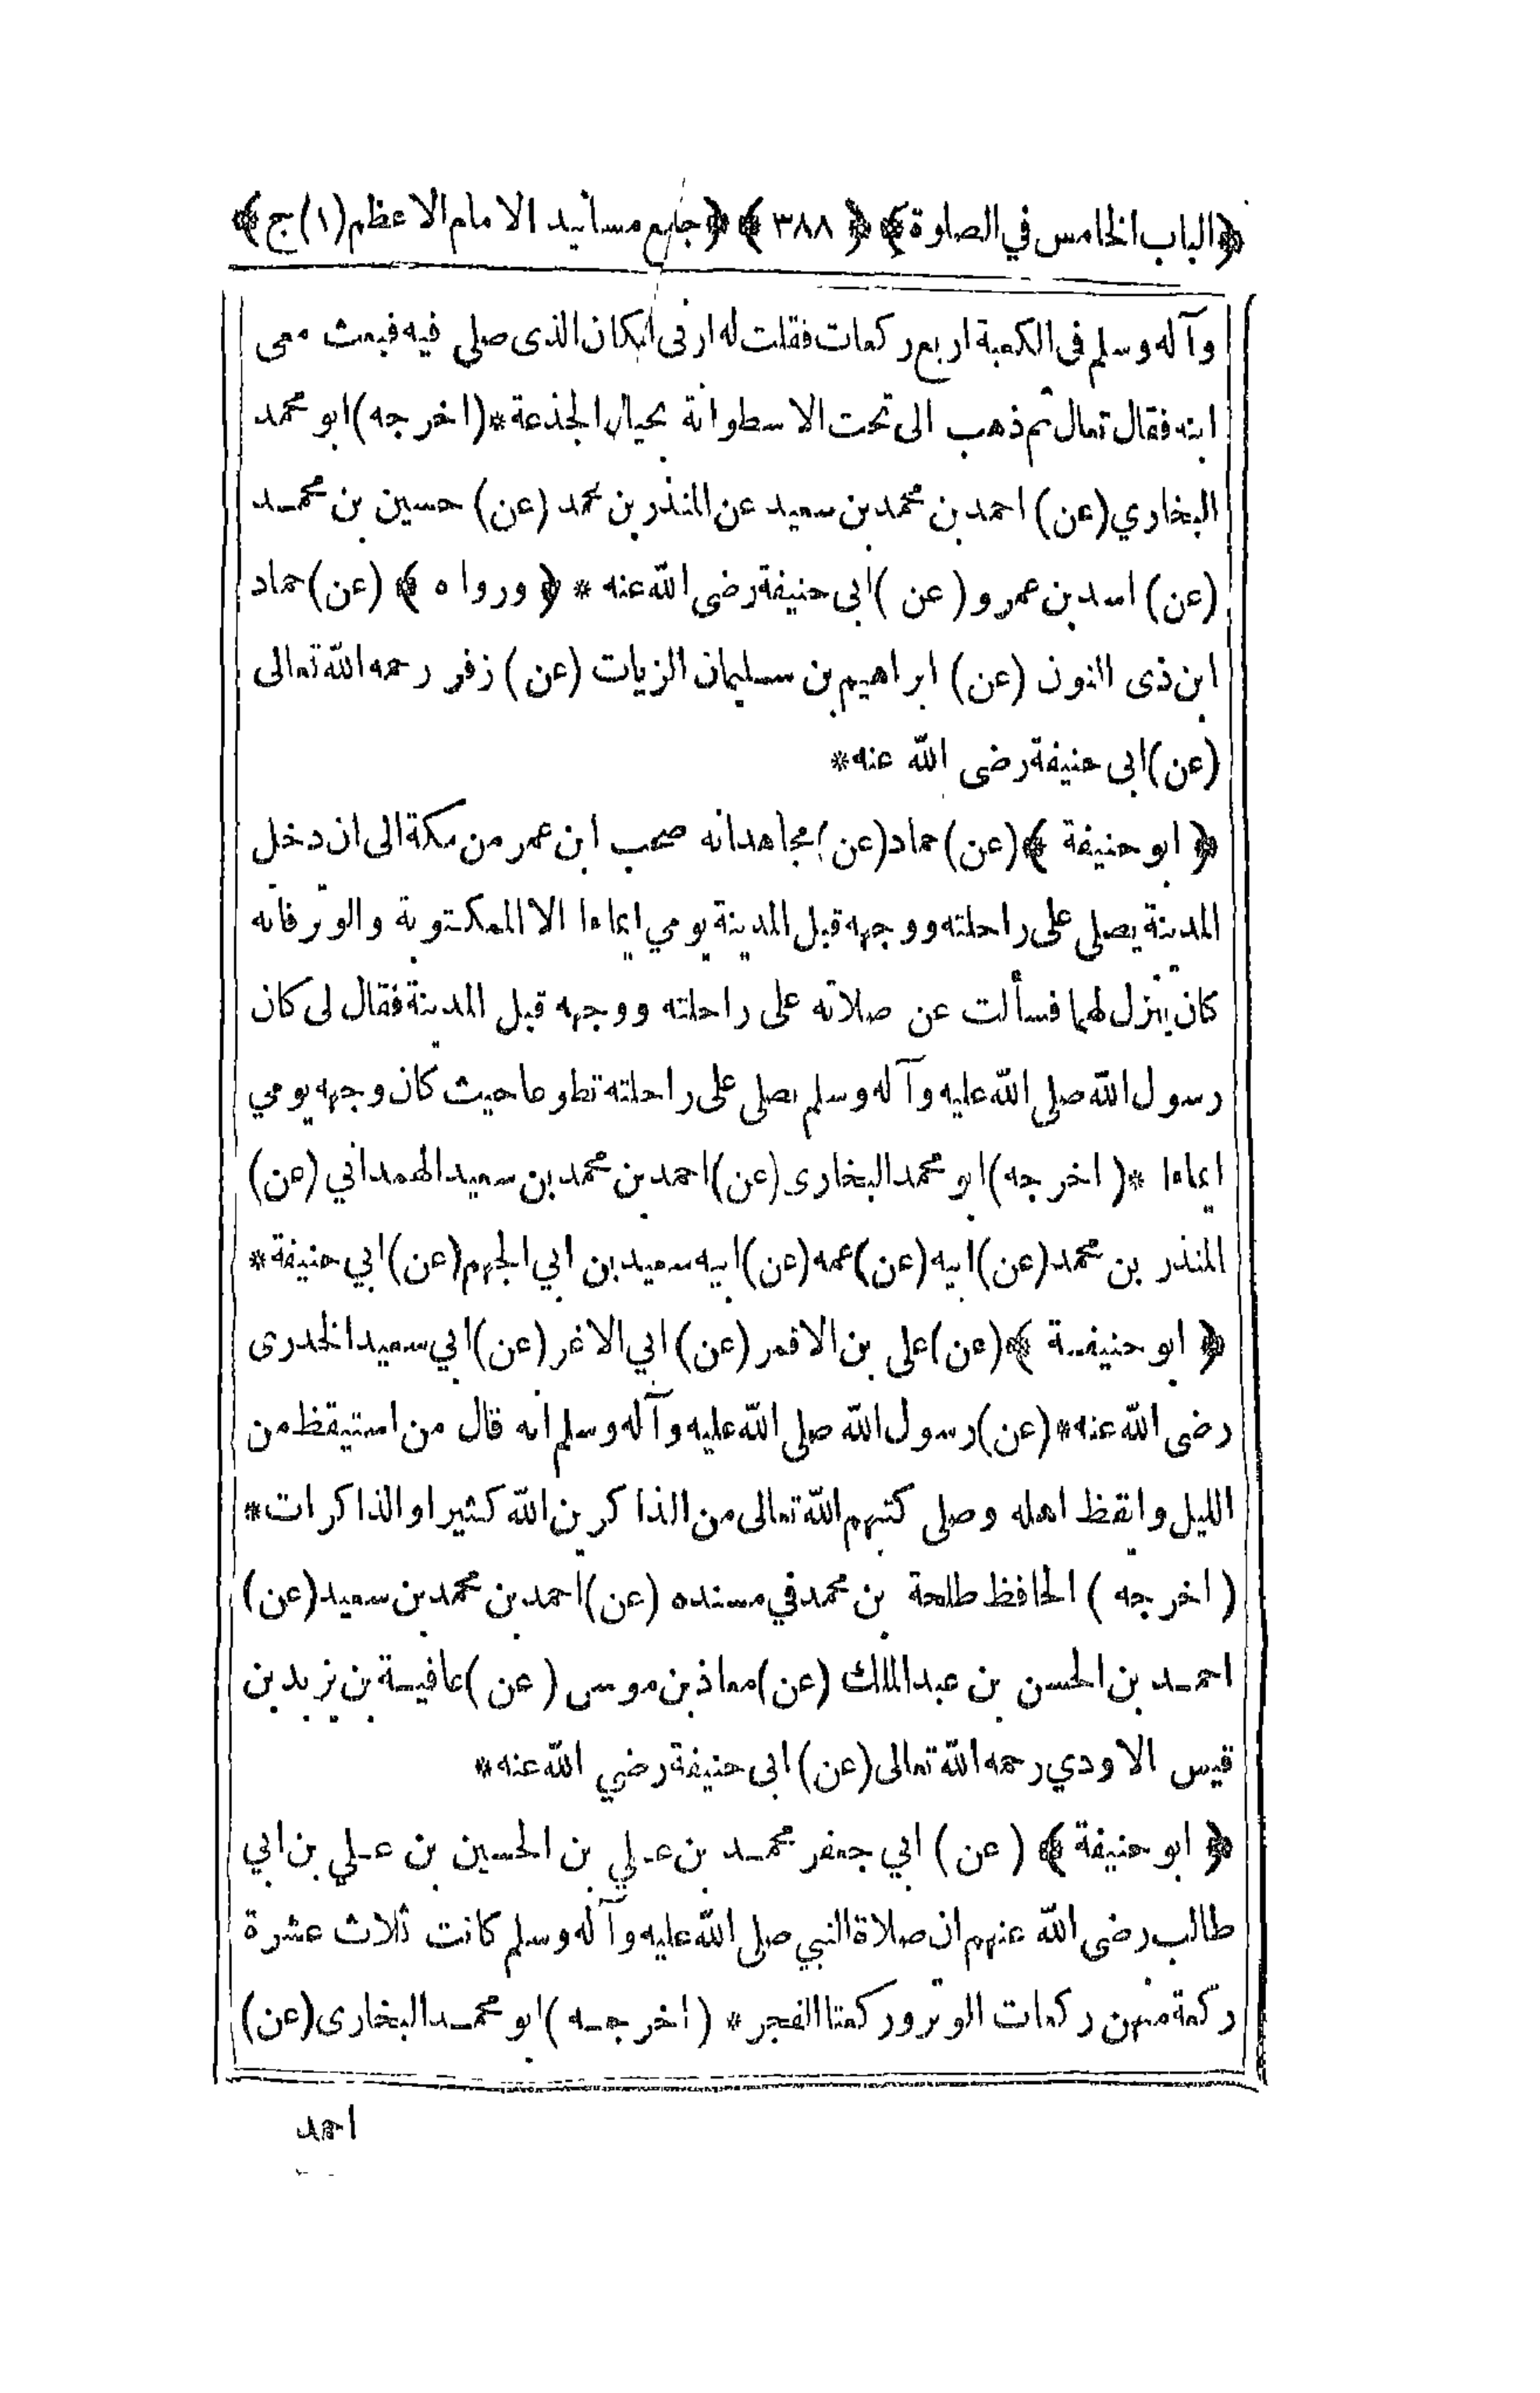 ﴿الباب الخامس في الصلوة﴾ ﴿ ٣٨٨ ﴾ ﴿جامع مسانيد الامام الاعظم(١)ج﴾
وآله وسلم فى الكعبة اربع ركعات فقلت له ارنى المكان الذى صلى فيه فبعث معى
ابنه فقال تعال ثم ذهب الى تحت الاسطوانة بحيال الجذعة*(اخرجه)ابو محمد
البخاري(عن) احمد بن محمد بن سعيد عن المنذر بن محمد (عن) حسين بن محمد
(عن) اسد بن عمرو (عن) ابى حنيفة رضى الله عنه * ﴿ ورواه ﴾ (عن) حماد
ابن ذى النون (عن) ابراهيم بن سليمان الزيات (عن) زفر رحمه الله تعالى
(عن) ابى حنيفة رضى الله عنه*
﴿ ابو حنيفة ﴾(عن) حماد(عن) مجاهد انه صحب ابن عمر من مكة الى ان دخل
المدينة يصلى على راحلته ووجهه قبل المدينة يومي ايماءا الا المكتوبة والوتر فانه
كان ينزل لهما فسألت عن صلاته على راحلته ووجهه قبل المدينة فقال لى كان
رسول الله صلى الله عليه وآله وسلم يصلى على راحلته تطوعا حيث كان وجهه يومي
ايماءا *( اخرجه)ابو محمد البخارى(عن)احمد بن محمد بن سعيد الهمداني (عن)
المنذر بن محمد(عن)ابيه(عن)عمه(عن)ابيه سعيد بن ابي الجهم(عن)ابي حنيفة*
﴿ ابو حنيفة ﴾(عن)على بن الاقمر(عن) ابي الاغر(عن)ابي سعيد الخدرى
رضى الله عنه*(عن)رسول الله صلى الله عليه وآله وسلم انه قال من استيقظ من
الليل وايقظ اهله وصلى كتبهم الله تعالى من الذاكرين الله كثيرا والذاكرات*
( اخرجه ) الحافظ طلحة بن محمد في مسنده (عن)احمد بن محمد بن سعيد(عن)
احمد بن الحسن بن عبد الملك (عن)معاذ بن موسى (عن) عافية بن يزيد بن
قيس الاودي رحمه الله تعالى(عن) ابى حنيفة رضي الله عنه*
﴿ ابو حنيفة ﴾ (عن) ابي جعفر محمد بن علي بن الحسين بن علي بن ابي
طالب رضى الله عنهم ان صلاة النبي صلى الله عليه وآله وسلم كانت ثلاث عشرة
ركعة منهن ركعات الوتر وركعتا الفجر* (اخرجه) ابو محمد البخارى(عن)
احمد